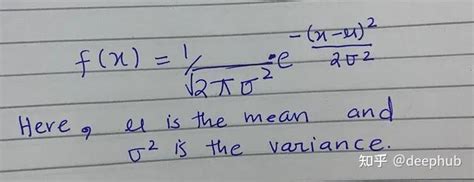 f(x) = 1/√2πσ² · e^-(x-μ)²/2σ²
Here, μ is the mean and
σ² is the variance.
知乎 @deephub